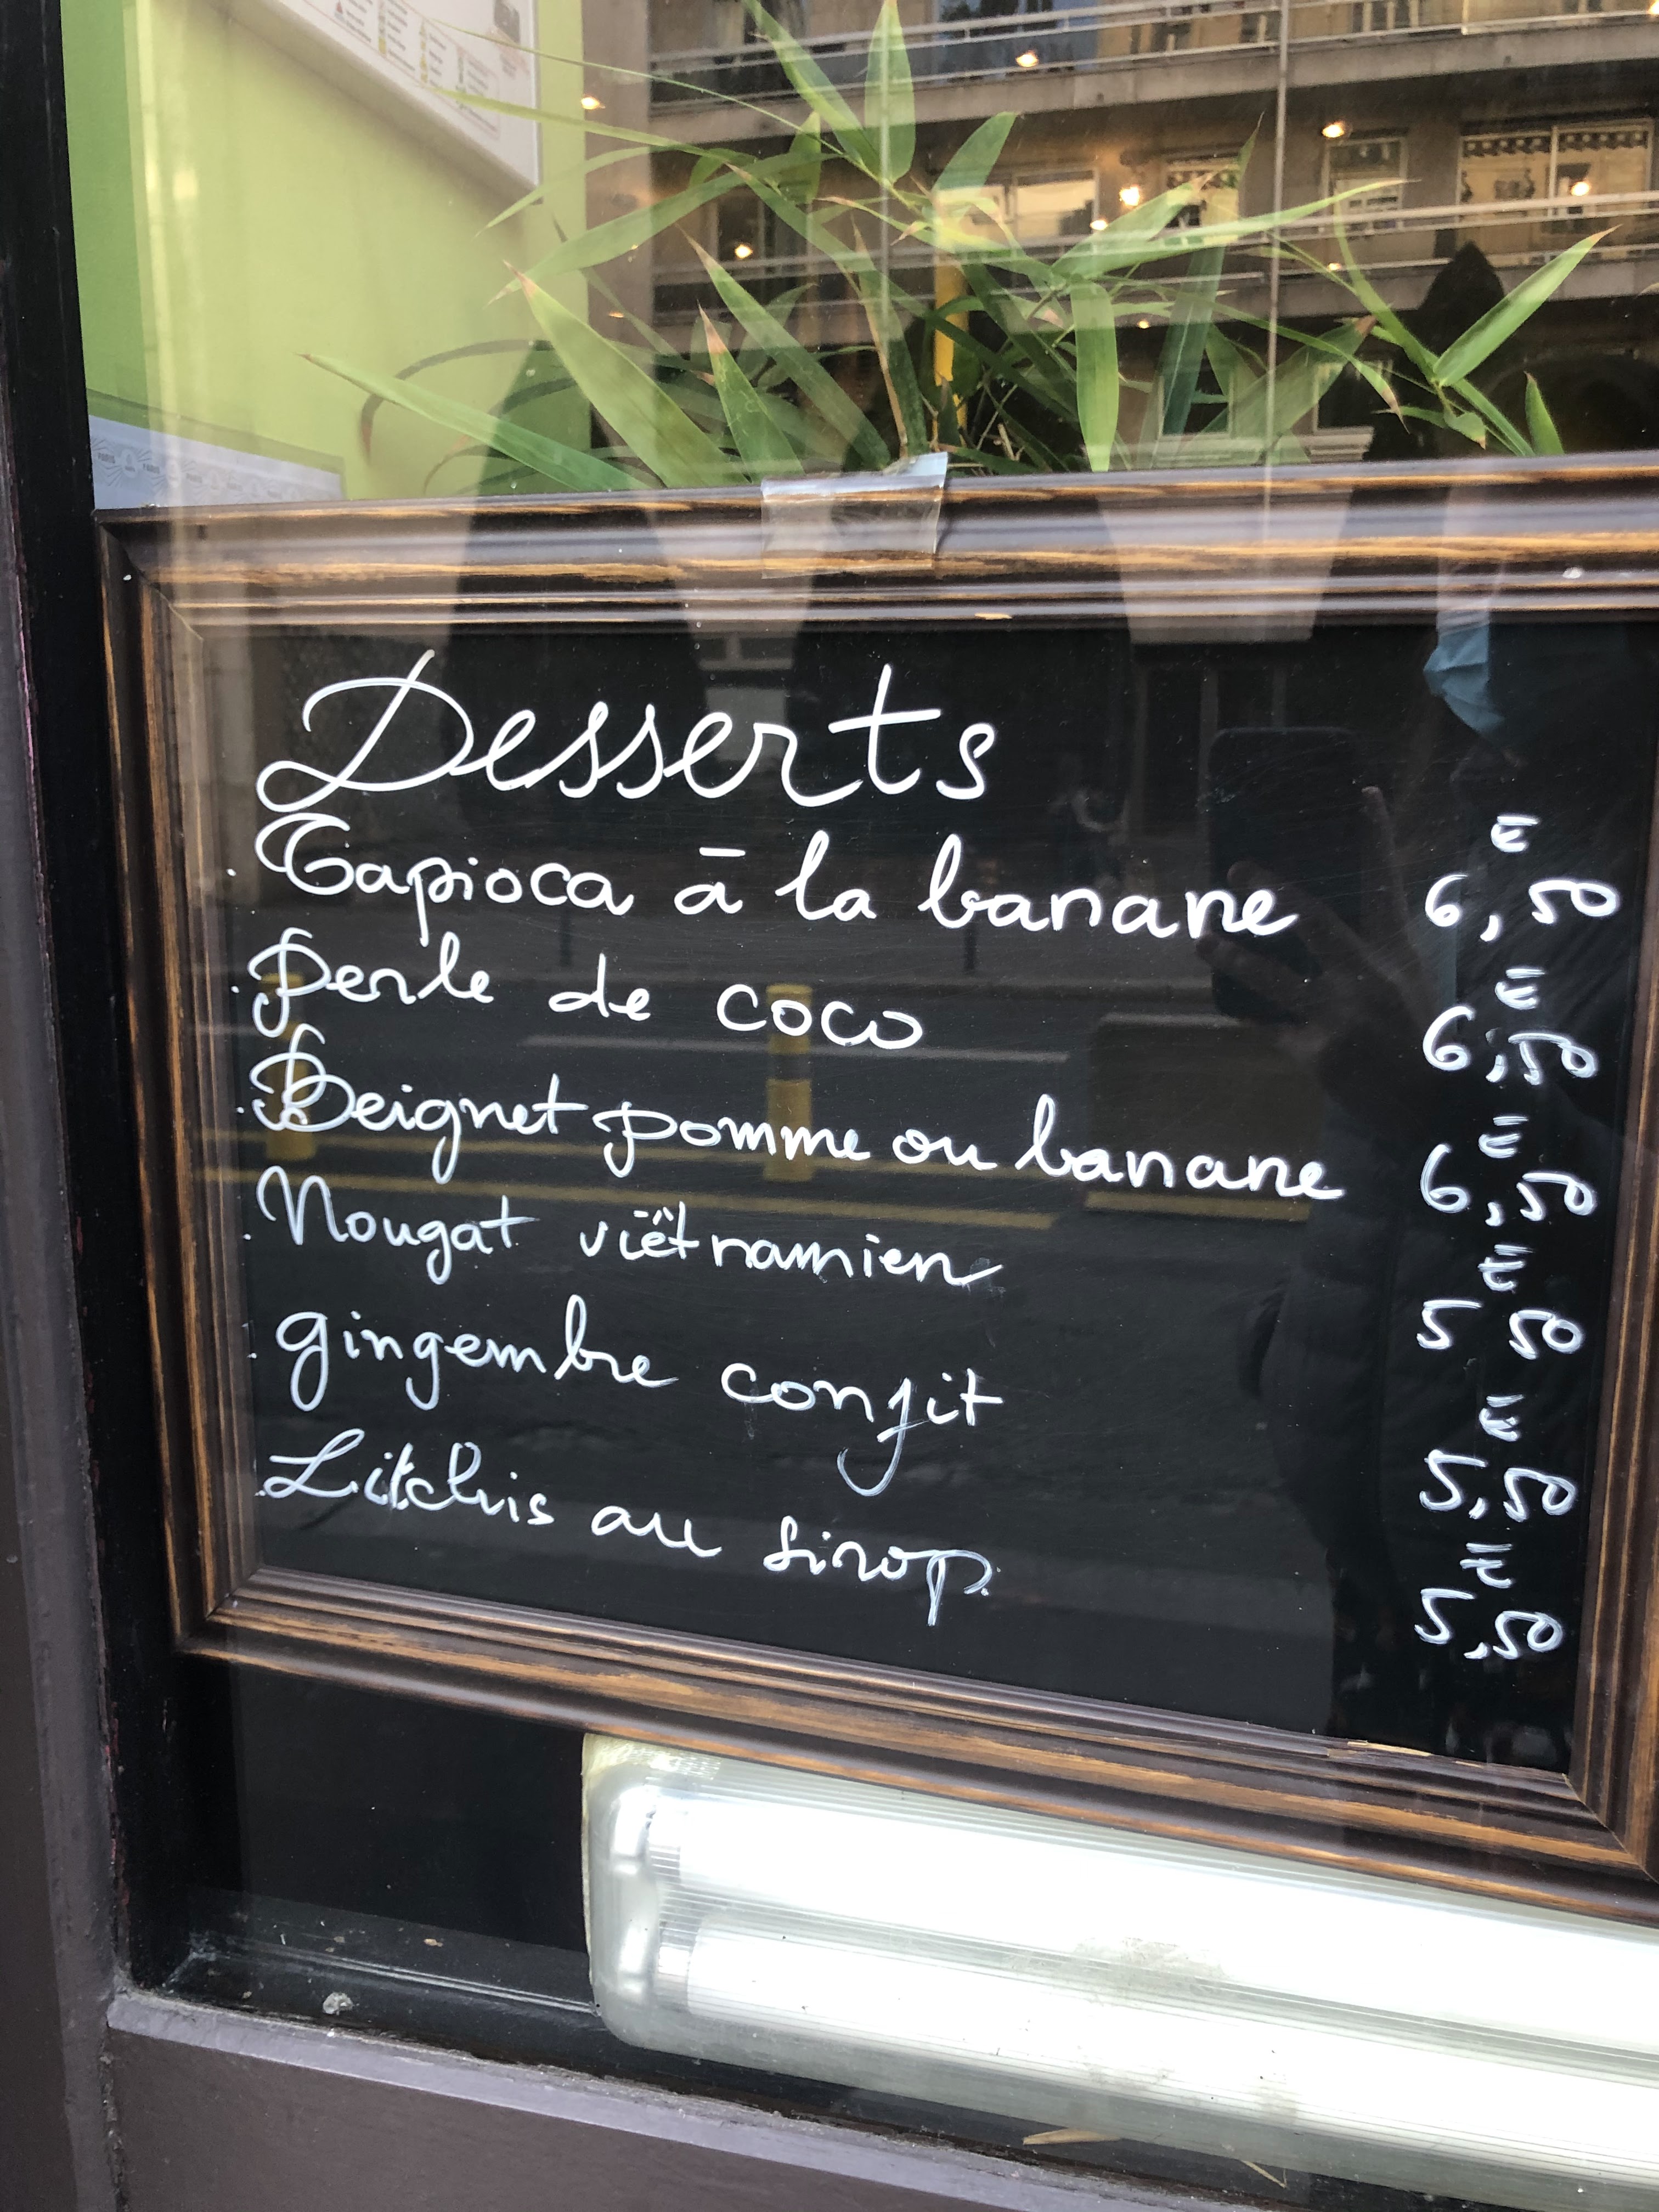 Desserts
. Tapioca à la banane 6,50 €
. Perle de coco 6,50 €
. Beignet pomme ou banane 6,50 €
. Nougat viêtnamien 5 50 €
. gingembre confit 5,50 €
. Litchis au sirop. 5,50 €